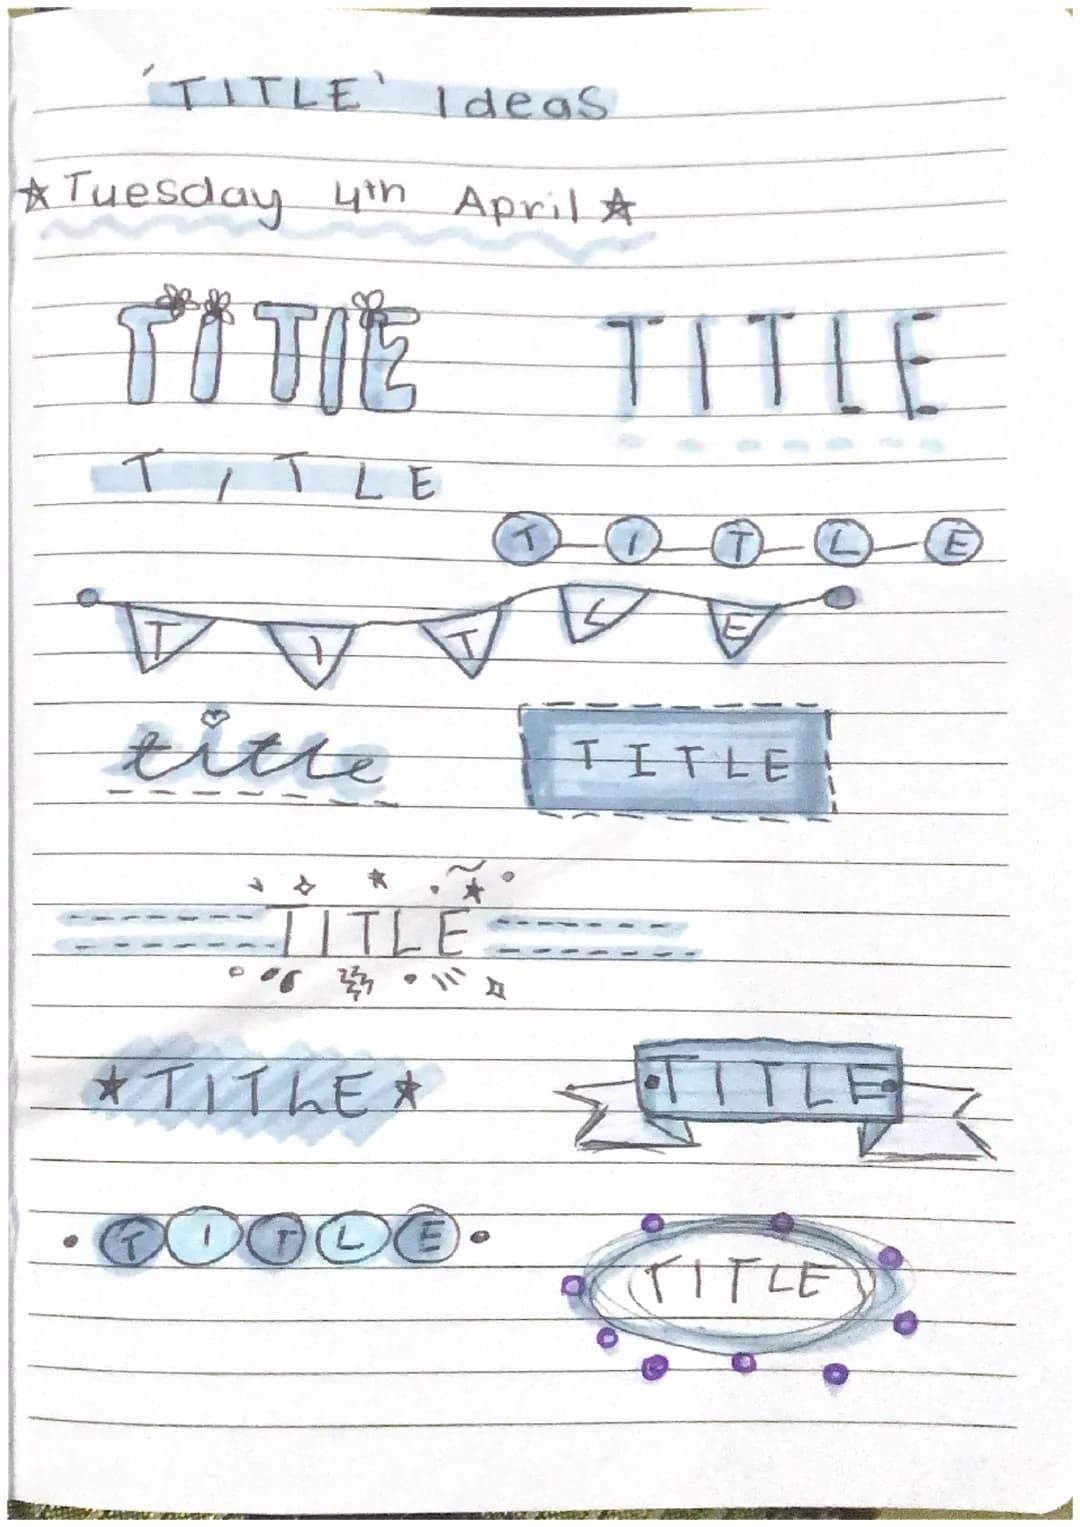 'TITLE' Ideas
☆ Tuesday 4th April ☆
TITLE
TITLE
TITLE
TITLE
TITLE
title
TITLE
TITLE
★ TITLE ★
TITLE
• TITLE •
TITLE